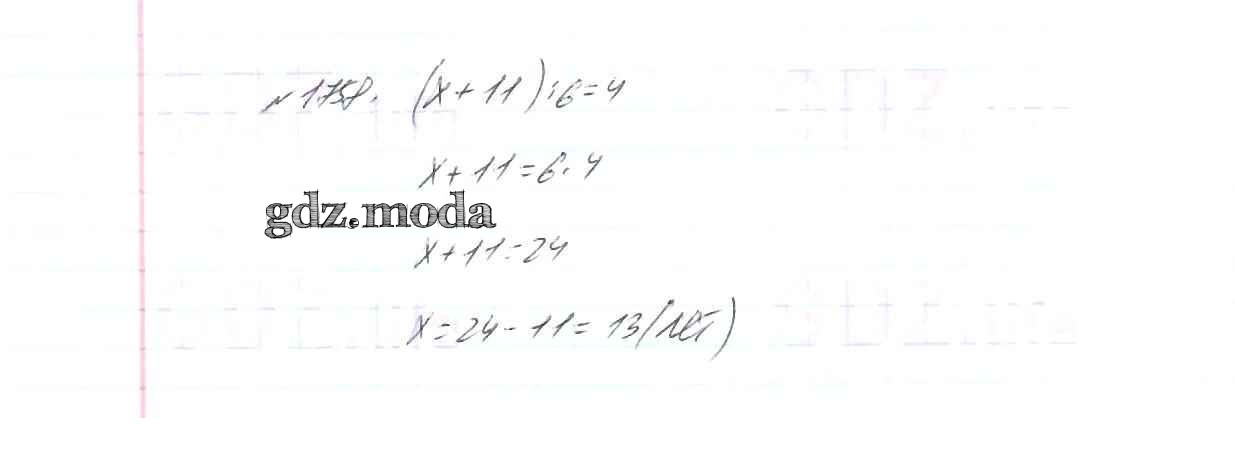 №1758. (x+11):6=4
x+11=6·4
gdz.moda
x+11=24
x=24-11=13(лет)